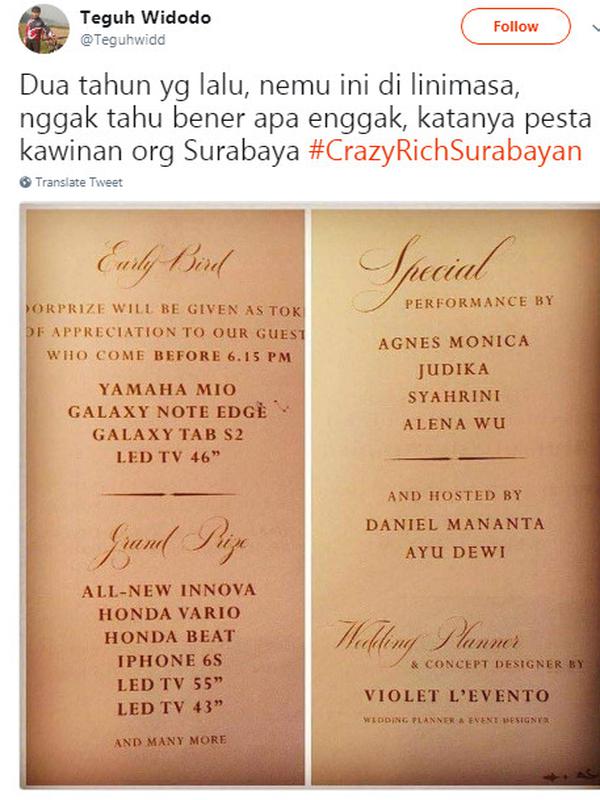 Teguh Widodo
@Teguhwidd
Follow
Dua tahun yg lalu, nemu ini di linimasa,
nggak tahu bener apa enggak, katanya pesta
kawinan org Surabaya #CrazyRichSurabayan
Translate Tweet
Early Bird
OORPRIZE WILL BE GIVEN AS TOK
OF APPRECIATION TO OUR GUEST
WHO COME BEFORE 6.15 PM
YAMAHA MIO
GALAXY NOTE EDGE
GALAXY TAB S2
LED TV 46”
Grand Prize
ALL-NEW INNOVA
HONDA VARIO
HONDA BEAT
IPHONE 6S
LED TV 55”
LED TV 43”
AND MANY MORE
Special
PERFORMANCE BY
AGNES MONICA
JUDIKA
SYAHRINI
ALENA WU
AND HOSTED BY
DANIEL MANANTA
AYU DEWI
Wedding Planner
& CONCEPT DESIGNER BY
VIOLET L’EVENTO
WEDDING PLANNER & EVENT DESIGNER